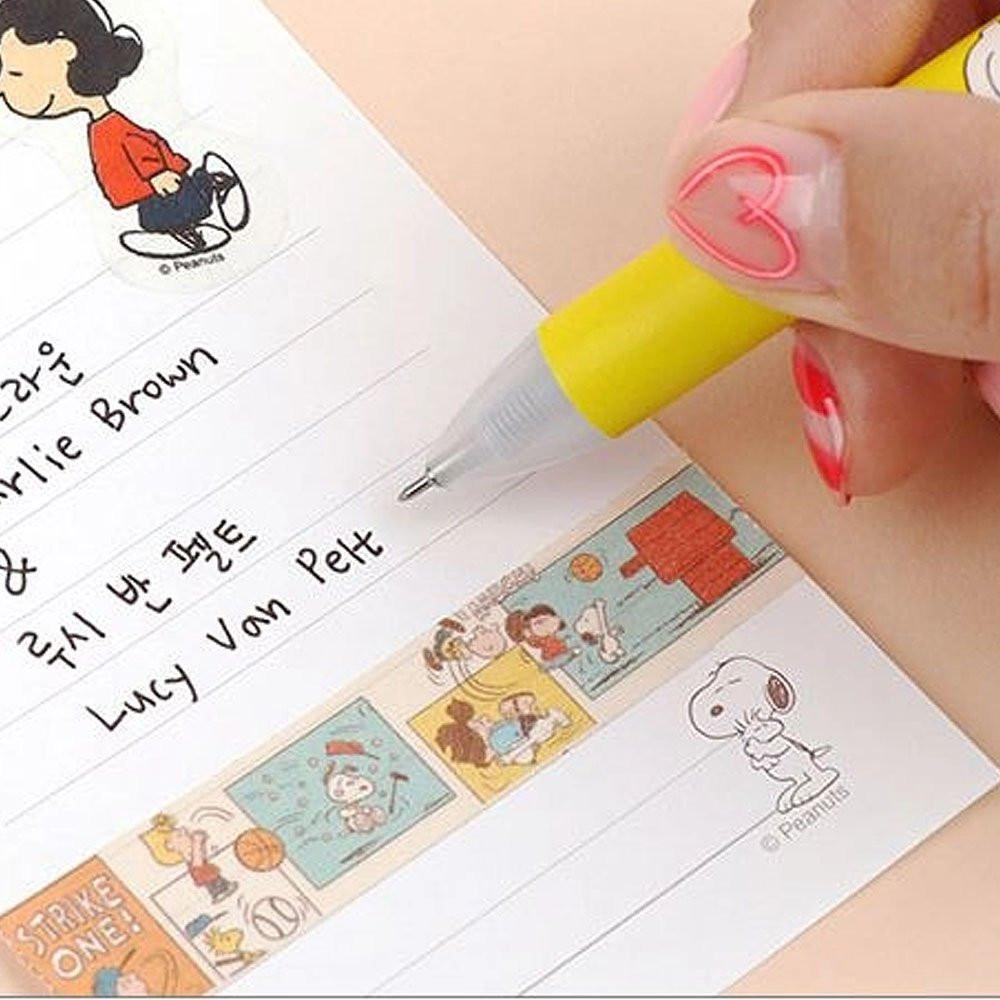 © Peanuts
라운
rlie Brown
&
루시 반 펠트
Lucy Van Pelt
STRIKE
ONE!
© Peanuts